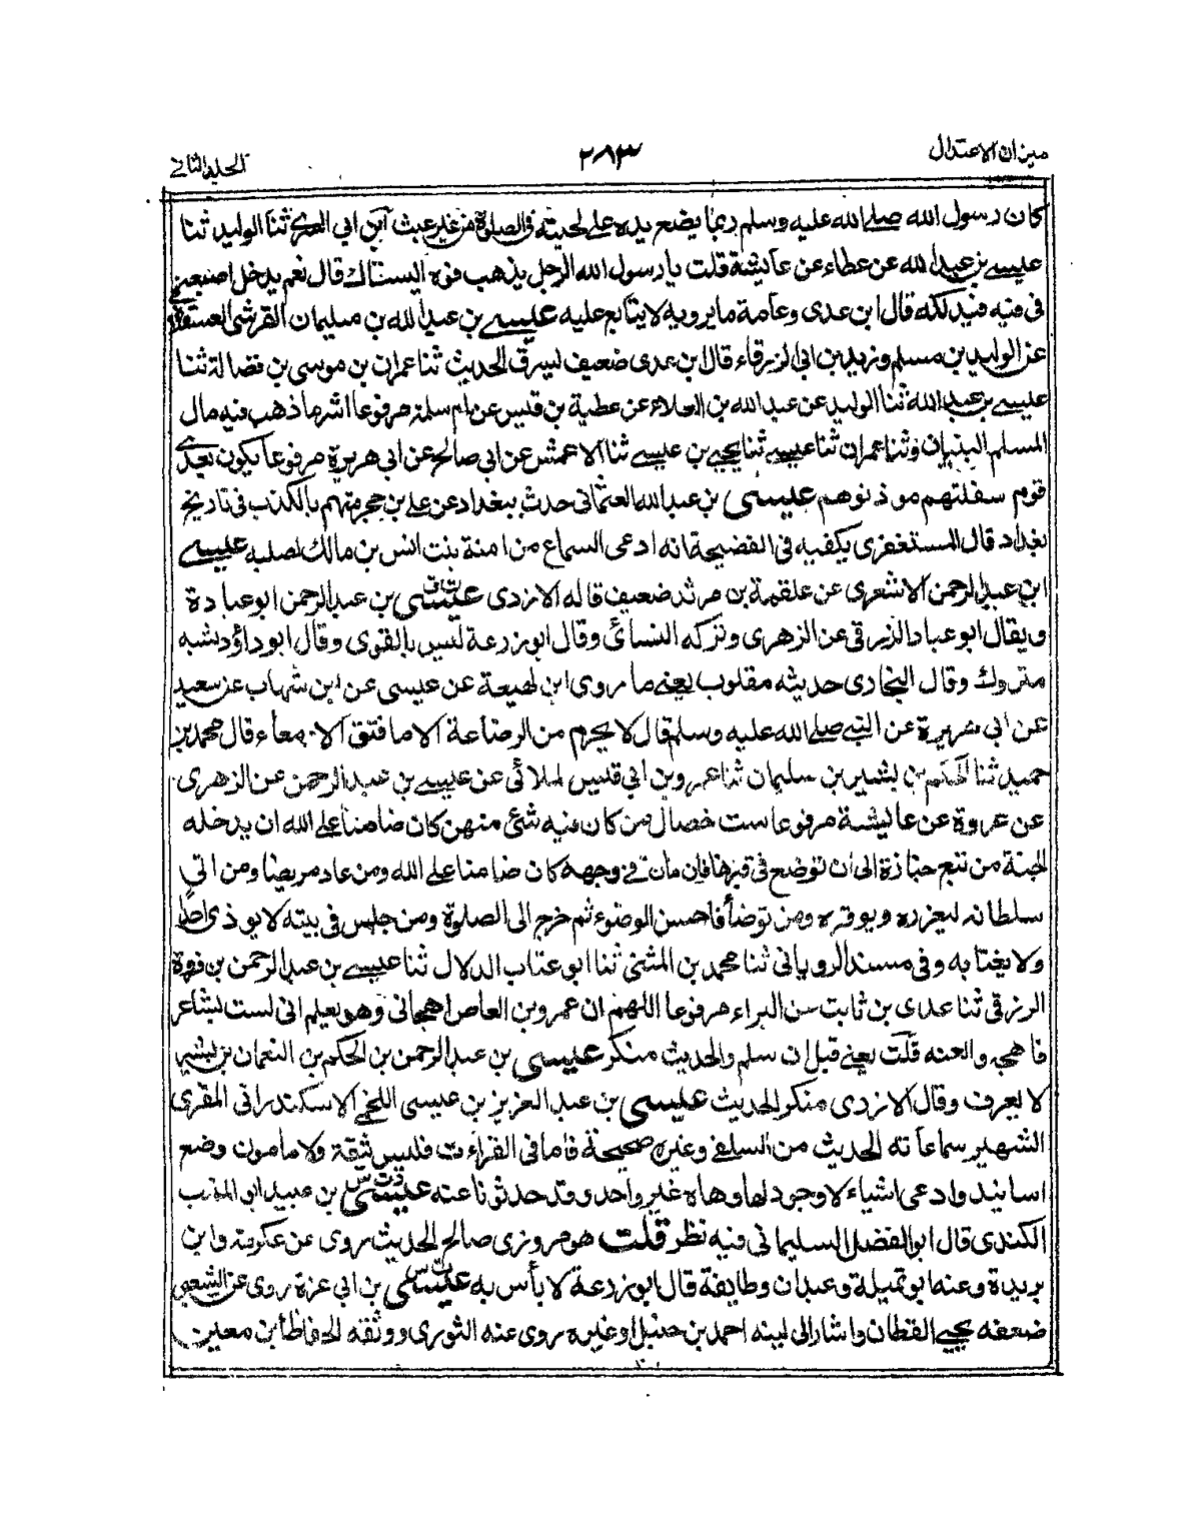 ميزان الاعتدال
٢٨٣
الجلد الثاني
كان رسول الله صلى الله عليه وسلم ربما يضع يده على لحيته في الصلوة من غير عبث ابن ابي السري ثنا الوليد ثنا
عيسى بن عبد الله عن عطاء عن عايشة قلت يا رسول الله الرجل يذهب فوه ايستاك قال نعم يدخل اصبعه
في فيه فيدلكه قال ابن عدى وعامة ما يرويه لا يتابع عليه عيسى بن عبد الله بن سليمان القرشي العسقلاني
عن الوليد بن مسلم وزيد بن ابي الزرقاء قال ابن عدى ضعيف ليسرق الحديث ثنا عمران بن موسى بن فضالة ثنا
عيسى بن عبد الله ثنا الوليد عن عبد الله بن العلاء عن عطية بن قيس عن ام سلمة مرفوعا اشر ما ذهب فيه مال
المسلم البنيان وثنا عمران ثنا عيسى ثنا يحيى بن عيسى ثنا الاعمش عن ابي صالح عن ابي هريرة مرفوعا يكون بعدي
قوم سفلتهم موذنوهم عيسى بن عبد الله العثماني حدث ببغداد عن علي بن حجر متهم بالكذب في تاريخ
بغداد قال المستغفري يكفيه في الفضيحة انه ادعى السماع من امنة بنت انس بن مالك لصلبه عيسى
ابن عبد الرحمن الاشعرى عن علقمة بن مرثد ضعيف قاله الازدى عيسى بن عبد الرحمن ابو عبادة
ويقال ابو عباد الزرقي عن الزهرى وتركه النسائ وقال ابو زرعة ليس بالقوى وقال ابو داؤد شبه
متروك وقال البخارى حديثه مقلوب يعني ما روى ابن لهيعة عن عيسى عن ابن شهاب عن سعيد
عن ابي هريرة عن النبي صلى الله عليه وسلم قال لا يحرم من الرضاعة الا ما فتق الامعاء قال محمد بن
حميد ثنا الحكم بن بشير بن سليمان ثنا عمرو بن ابي قيس الملائى عن عيسى بن عبد الرحمن عن الزهرى
عن عروة عن عايشة مرفوعا ست خصال من كان فيه شئ منهن كان ضامنا على الله ان يدخله
الجنة من تتبع جنازة الى ان توضع في قبرها فان مات في وجهه كان ضامنا على الله ومن عاد مريضا ومن اتى
سلطانه ليعزره ويوقره ومن توضأ فاحسن الوضوء ثم خرج الى الصلوة ومن جلس في بيته لا يوذى احدا
ولا يغتابه وفي مسند الروياني ثنا محمد بن المثنى ثنا ابو عتاب الدلال ثنا عيسى بن عبد الرحمن بن فروة
الزرقي ثنا عدى بن ثابت سن البراء مرفوعا اللهم ان عمرو بن العاص هجاني وهو يعلم اني لست بشاعر
فاهجه والعنه قلت يعني قبل ان سلم والحديث منكر عيسى بن عبد الرحمن بن الحكم بن النعمان بن بشير
لا يعرف وقال الازدى منكر الحديث عيسى بن عبد العزيز بن عيسى اللخمي الاسكندراني المقرى
الشهير سماعاته الحديث من السلفي وغيره صحيحة فاما في القراءت فليس بثقة ولا مامون وضع
اسانيد وادعى اشياء لا وجود لها وهاه غير واحد وقد حدثونا عنه عيسى بن عبيد ابو المنيب
الكندى قال ابو الفضل السليماني فيه نظر قلت هو مروزى صالح الحديث روى عن عكرمة وابن
بريدة وعنه ابو تميلة وعبدان وطايفة قال ابو زرعة لا بأس به عيسى بن ابي عزة روى عن الشعبي
ضعفه يحيى القطان واشار الى لينه احمد بن حنبل وغيره روى عنه الثورى ووثقه الحفاظ ابن معين